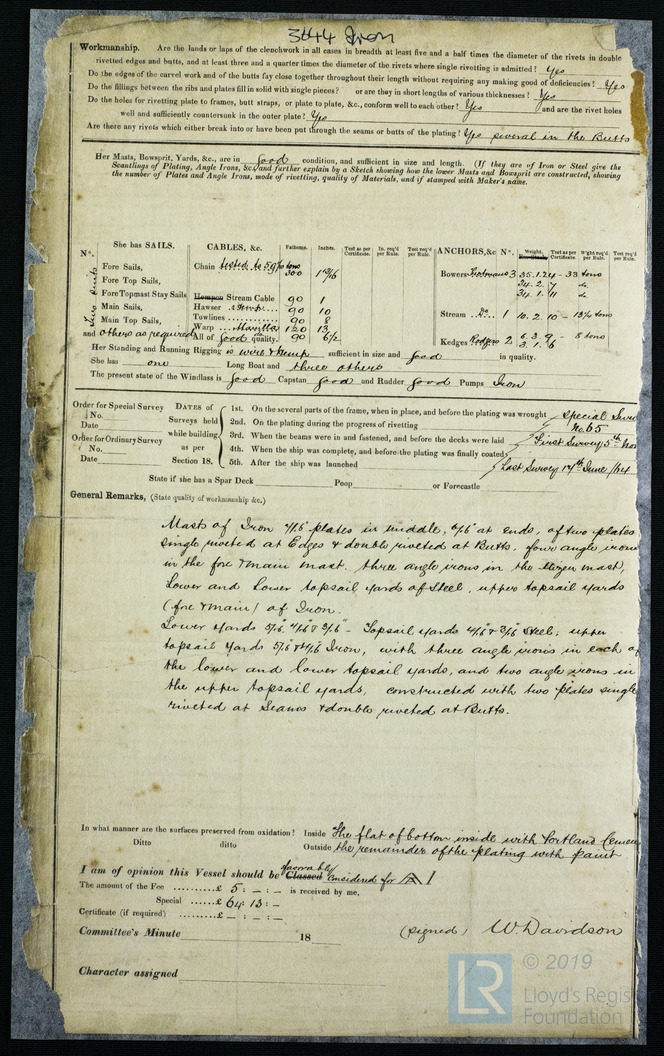 3644 Iron
Workmanship. Are the lands or laps of the clenchwork in all cases in breadth at least five and a half times the diameter of the rivets in double
rivetted edges and butts, and at least three and a quarter times the diameter of the rivets where single rivetting is admitted? Yes
Do the edges of the carvel work and of the butts fay close together throughout their length without requiring any making good of deficiencies? Yes
Do the fillings between the ribs and plates fill in solid with single pieces? or are they in short lengths of various thicknesses? Yes
Do the holes for rivetting plate to frames, butt straps, or plate to plate, &c., conform well to each other? Yes and are the rivet holes
well and sufficiently countersunk in the outer plate? Yes
Are there any rivets which either break into or have been put through the seams or butts of the plating? Yes several in the Butts
Her Masts, Bowsprit, Yards, &c., are in Good condition, and sufficient in size and length. (If they are of Iron or Steel give the
Scantlings of Plating, Angle Irons, &c. and further explain by a Sketch showing how the lower Masts and Bowsprit are constructed, showing
the number of Plates and Angle Irons, mode of rivetting, quality of Materials, and if stamped with Maker's name.
No. She has SAILS. CABLES, &c. Fathoms. Inches. Test as per Certificate. In. req'd per Rule. Test req'd per Rule. ANCHORS, &c No. Weight. Test as per Certificate. W'ght req'd per Rule. Test req'd per Rule.
Two suits
Fore Sails, Chain tested to 59 7/10 tons 300 1 13/16 Bowers 3 35.1.24 - 33 tons
Fore Top Sails, 34.2.7 do
Fore Topmast Stay Sails Hempen Stream Cable 90 1 34.1.11 do
Main Sails, Hawser Hemp 90 10 Stream Do 1 10.2.10 - 13 tons
Main Top Sails, Towlines 90 8
Warp Manilla 120 13
and others as required All of Good quality. 90 6 1/2 Kedges Rodgers 2 6.3.9 - 8 tons
3.1.6
Her Standing and Running Rigging is wire & hemp sufficient in size and Good in quality.
She has one Long Boat and three others
The present state of the Windlass is Good Capstan Good and Rudder Good Pumps Iron
Order for Special Survey No. Date
Order for Ordinary Survey No. Date
DATES of Surveys held while building as per Section 18.
1st. On the several parts of the frame, when in place, and before the plating was wrought Special Surv
2nd. On the plating during the progress of rivetting No 65
3rd. When the beams were in and fastened, and before the decks were laid First Survey 5th Nov
4th. When the ship was complete, and before the plating was finally coated
5th. After the ship was launched Last Survey 14th June /64
State if she has a Spar Deck Poop or Forecastle
General Remarks, (State quality of workmanship &c.)
Masts of Iron 7/16" plates in middle, 6/16" at ends, of two plates
single riveted at Edges & double riveted at Butts, four angle irons
in the fore & main mast. three angle irons in the Mizen mast,
Lower and Lower topsail yards of Steel, upper topsail yards
(fore & main) of Iron.
Lower yards 5/16" 4/16" & 3/16" - Topsail yards 4/16" & 3/16" Steel; upper
topsail yards 5/16 & 4/16 Iron, with three angle irons in each o
the lower and lower topsail yards, and two angle irons in
the upper topsail yards, constructed with two plates single
riveted at Seams & double riveted at Butts.
In what manner are the surfaces preserved from oxidation? Inside The flat of bottom inside with Portland Cemen
Ditto ditto Outside the remainder of the plating with paint
I am of opinion this Vessel should be Classed favorably Considered for A 1
The amount of the Fee ..........£ 5 : - : - is received by me,
Special ......£ 64 : 13 : -
Certificate (if required) ....£ - : - : -
Committee's Minute 18 (signed) W. Davidson
Character assigned
LR © 2019
Lloyd's Regis
Foundation